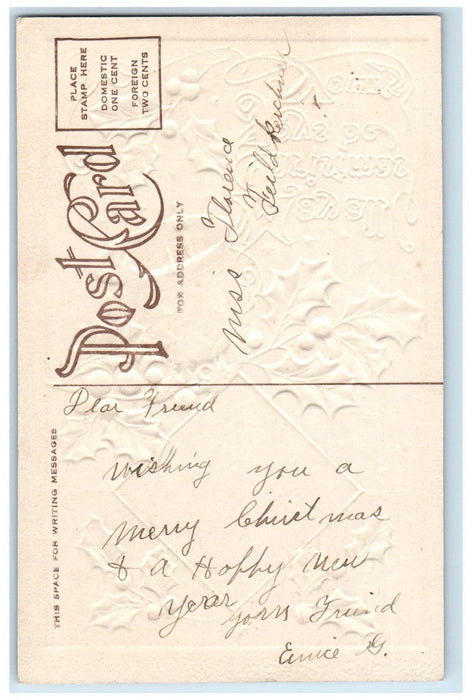 PLACE
STAMP HERE
DOMESTIC
ONE CENT
FOREIGN
TWO CENTS
Post Card
FOR ADDRESS ONLY
Miss Florence
THIS SPACE FOR WRITING MESSAGES
Dear Friend
Wishing you a
Merry Christmas
& a Happy New
Year
Yours Friend
Eunice G.